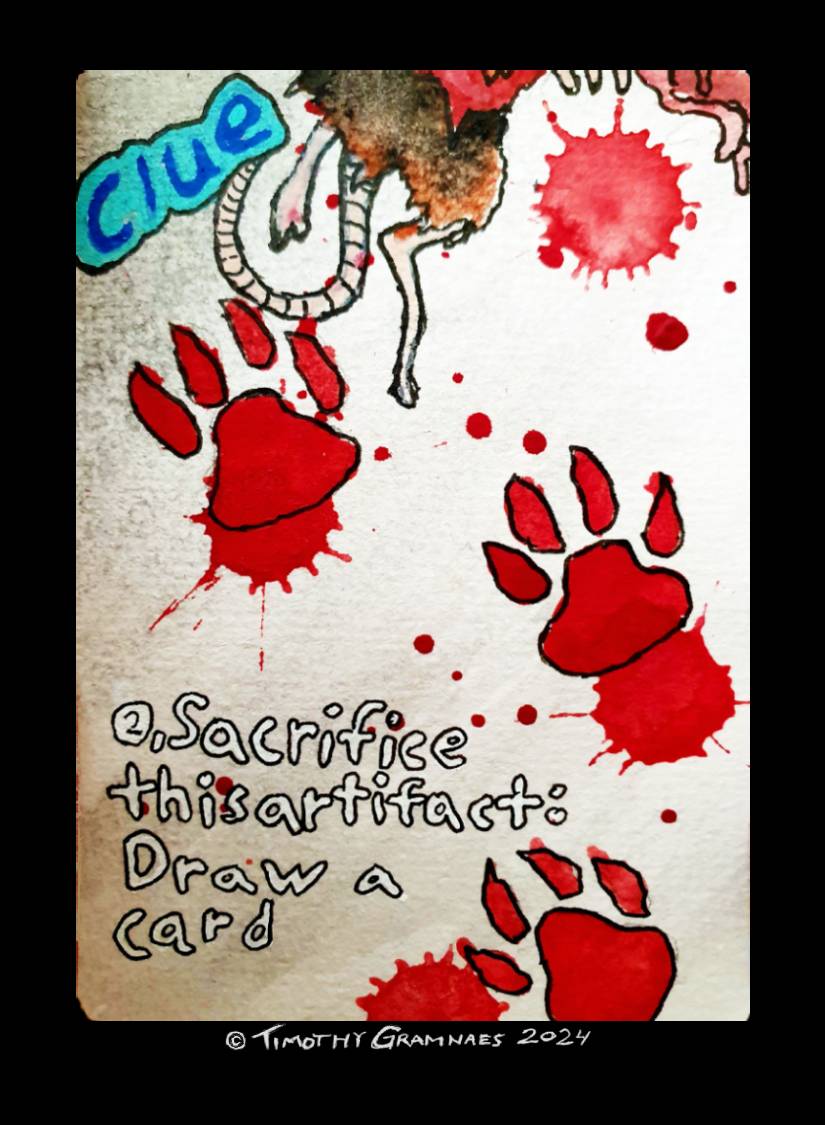 Clue
②, Sacrifice
this artifact:
Draw a
card
© TIMOTHY GRAMNAES 2024